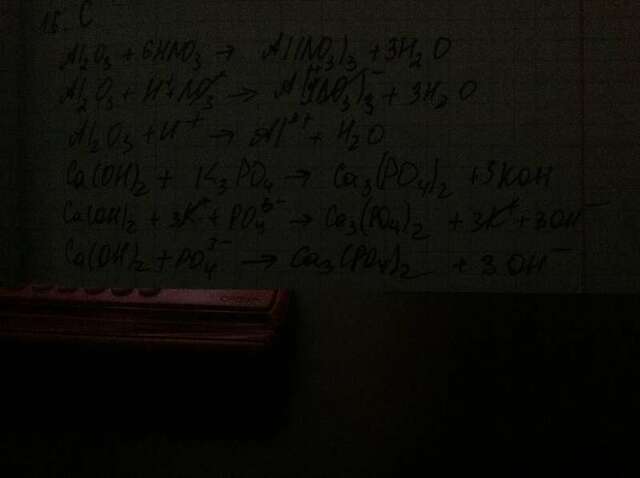 18. C
Al₂O₃ + 6HNO₃ → Al(NO₃)₃ + 3H₂O
Al₂O₃ + H⁺ + NO₃⁻ → Al(NO₃)₃⁻ + 3H₂O
Al₂O₃ + H⁺ → Al³⁺ + H₂O
Ca(OH)₂ + K₃PO₄ → Ca₃(PO₄)₂ + 3KOH
Ca(OH)₂ + 3K⁺ + PO₄³⁻ → Ca₃(PO₄)₂ + 3K⁺ + 3OH⁻
Ca(OH)₂ + PO₄³⁻ → Ca₃(PO₄)₂ + 3OH⁻